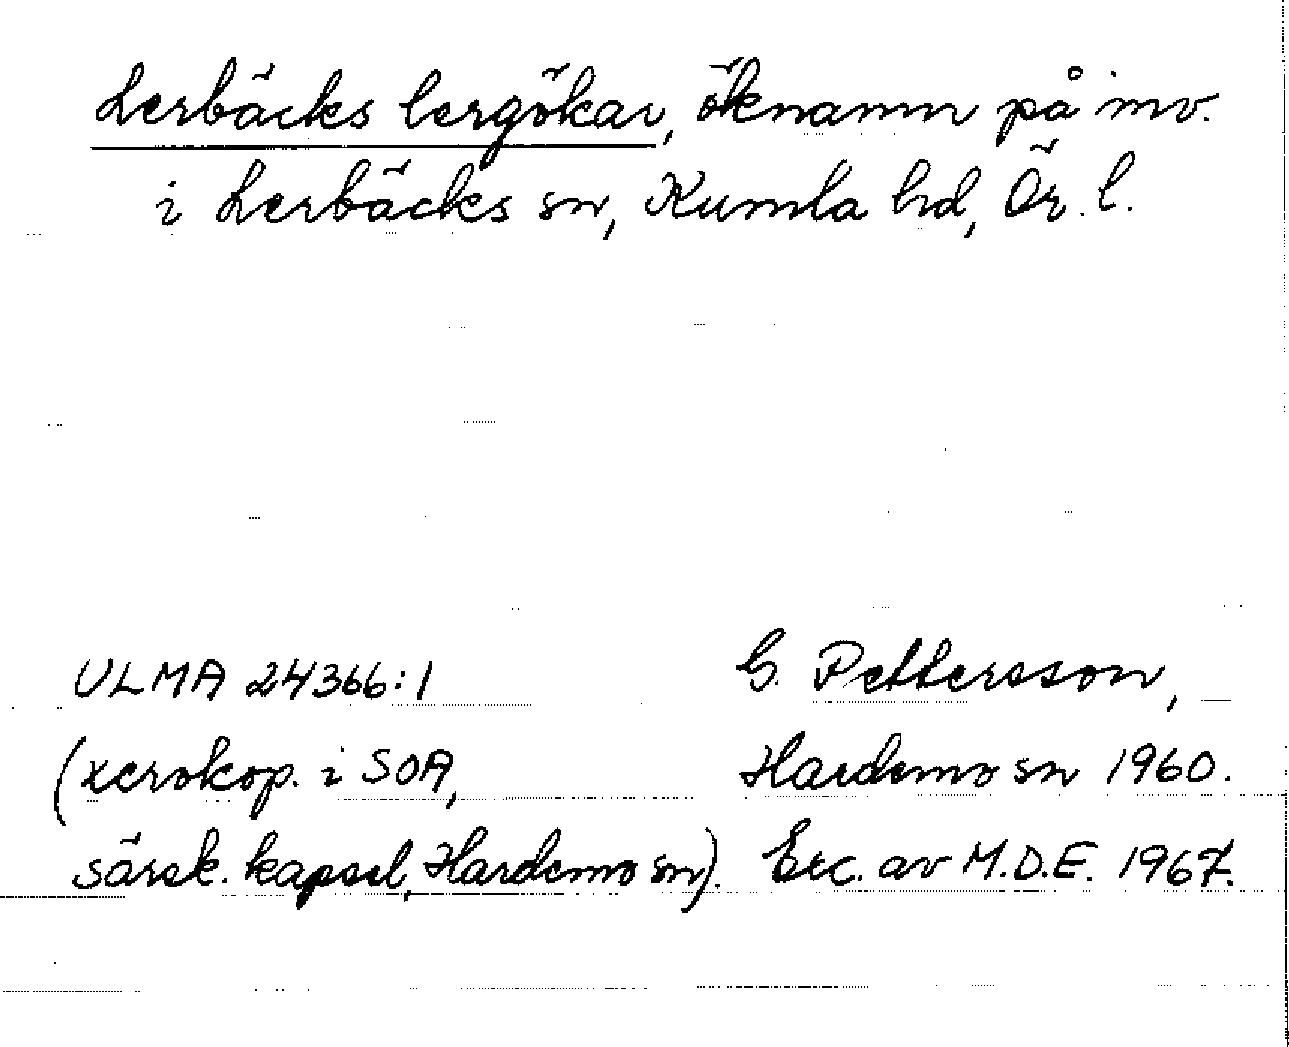 Lerbäcks lergökar, öknamn på inv.
i Lerbäcks sn, Kumla hd, Ör. l.
ULMA 24366:1
(xerokop. i SOA,
särsk. kapsel, Hardemo sn).
G. Pettersson,
Hardemo sn 1960.
Exc. av M.D.E. 1967.